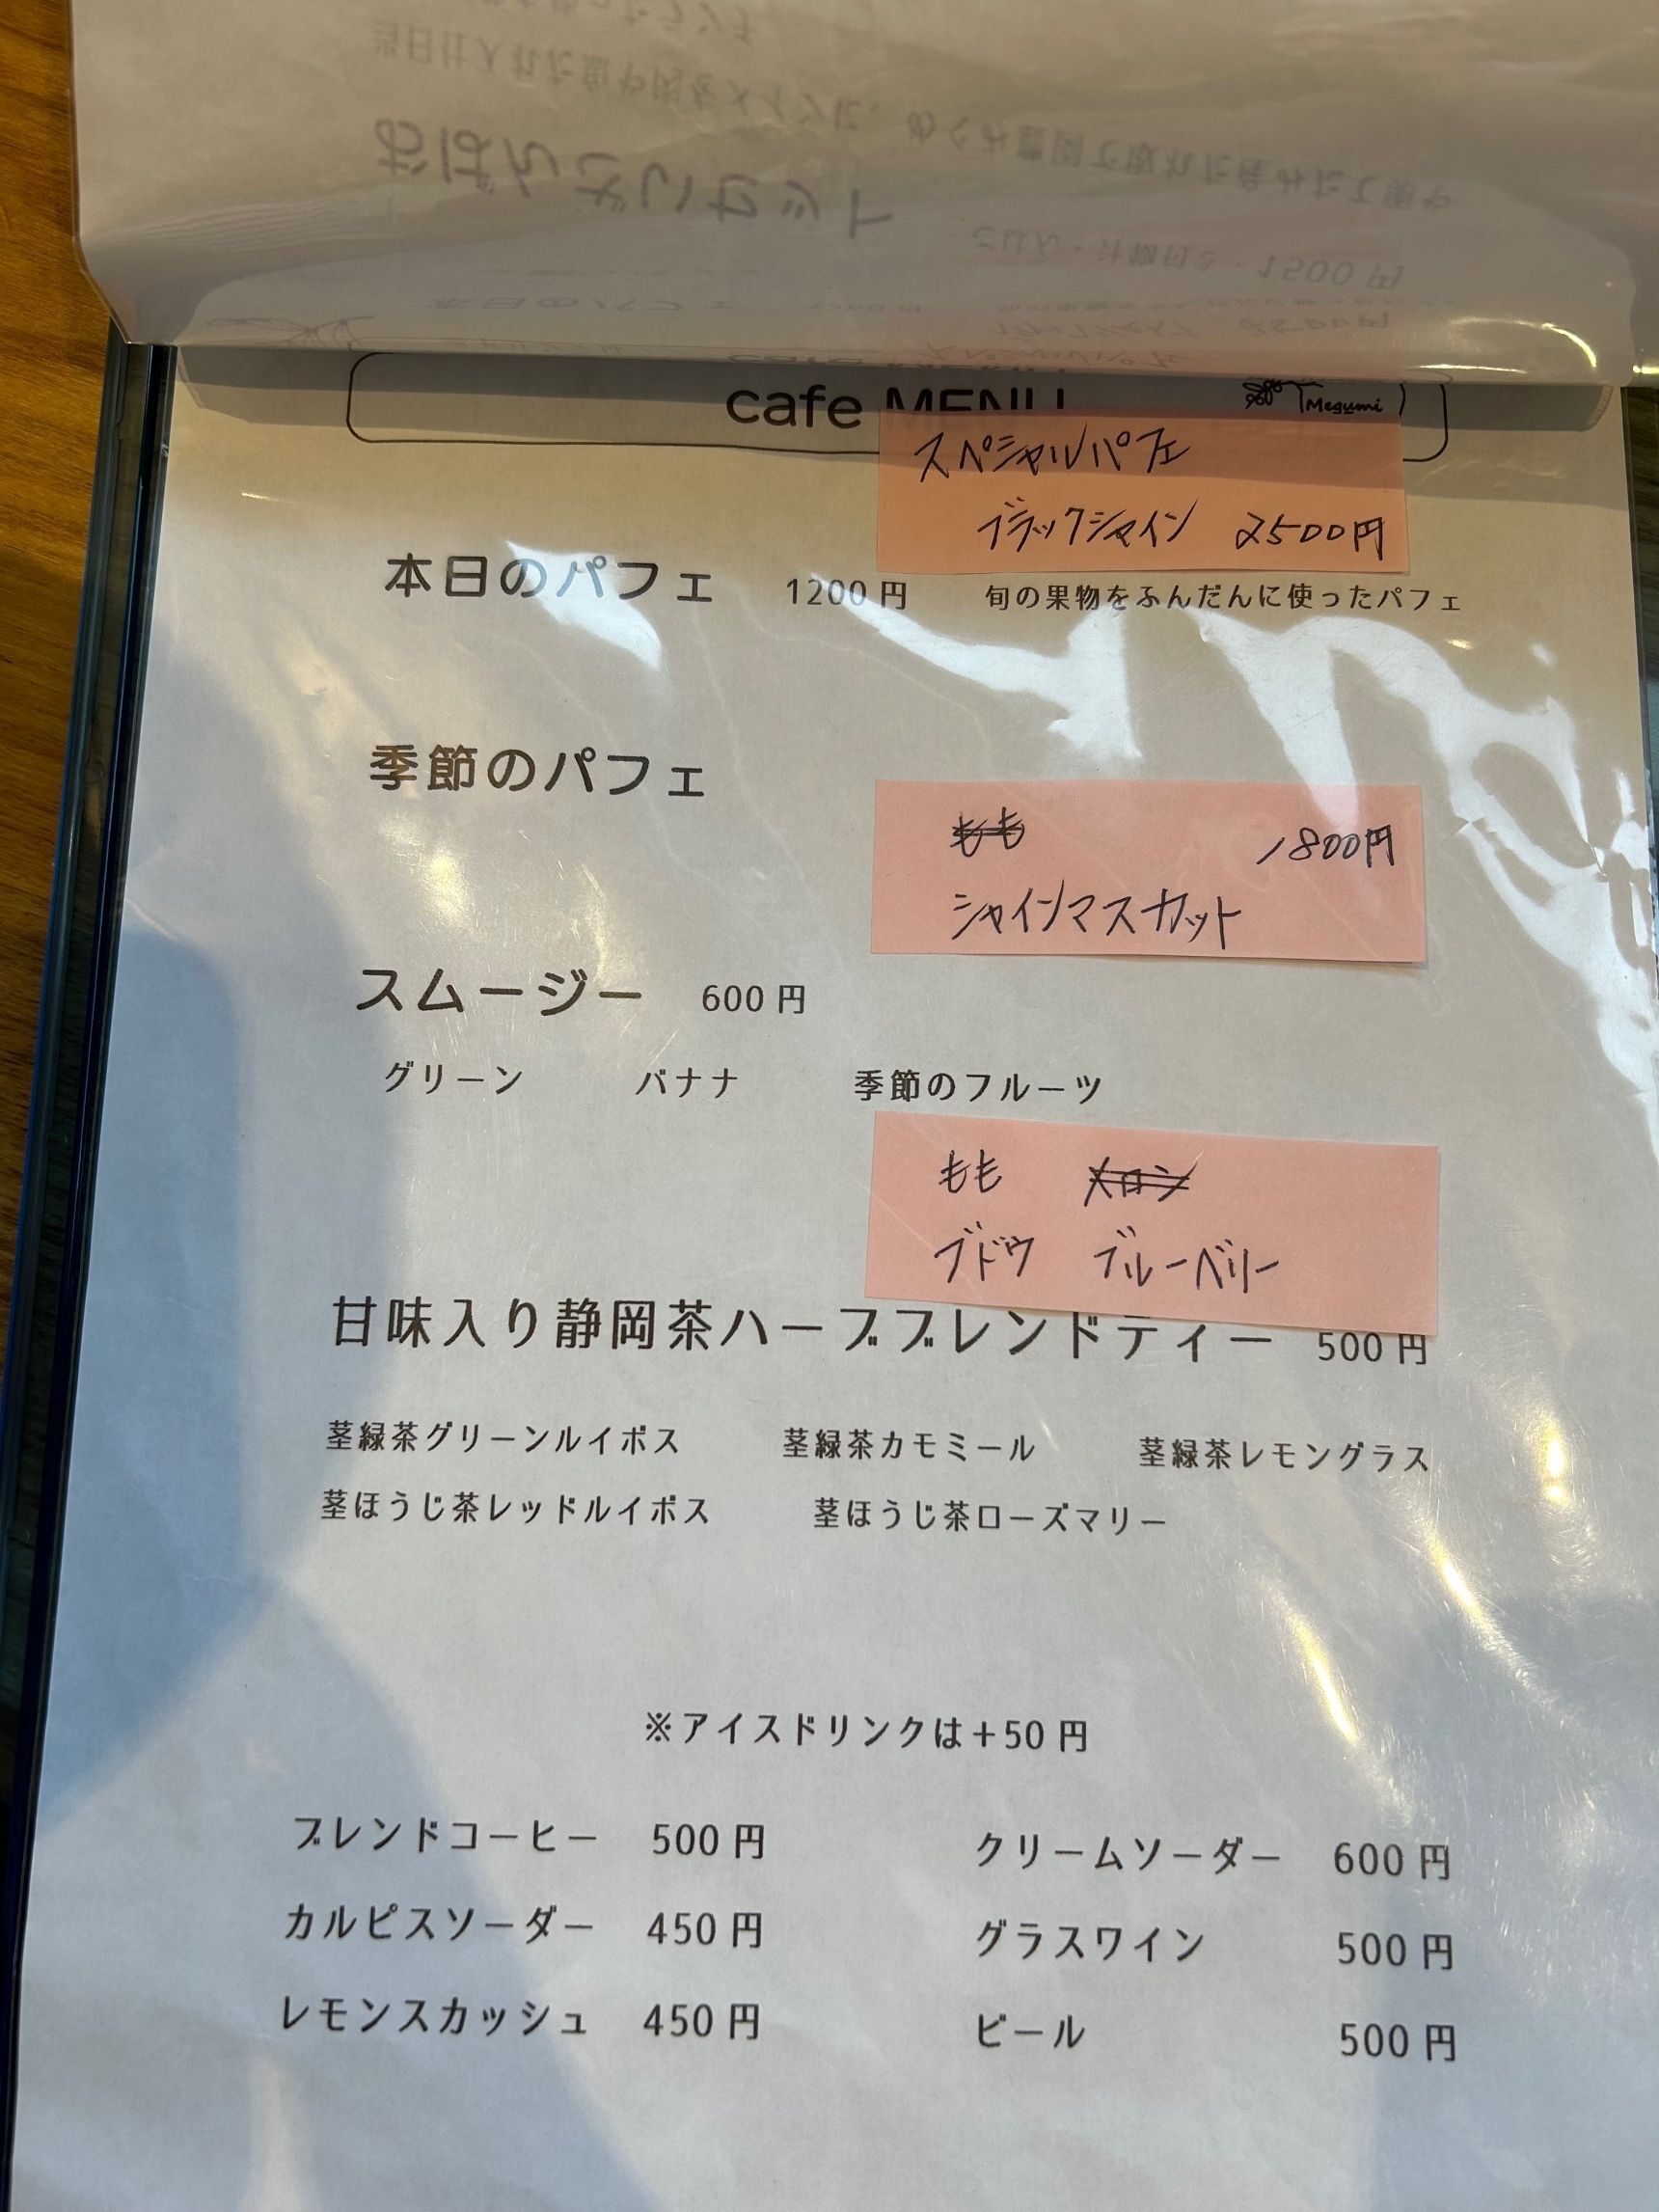 おばんざいセット
1500円
cafe MENU
Megumi
スペシャルパフェ
ブラックシャイン 2500円
本日のパフェ 1200円 旬の果物をふんだんに使ったパフェ
季節のパフェ
もも 1800円
シャインマスカット
スムージー 600円
グリーン バナナ 季節のフルーツ
もも メロン
ブドウ ブルーベリー
甘味入り静岡茶ハーブブレンドティー 500円
茎緑茶グリーンルイボス 茎緑茶カモミール 茎緑茶レモングラス
茎ほうじ茶レッドルイボス 茎ほうじ茶ローズマリー
※アイスドリンクは+50円
ブレンドコーヒー 500円 クリームソーダー 600円
カルピスソーダー 450円 グラスワイン 500円
レモンスカッシュ 450円 ビール 500円